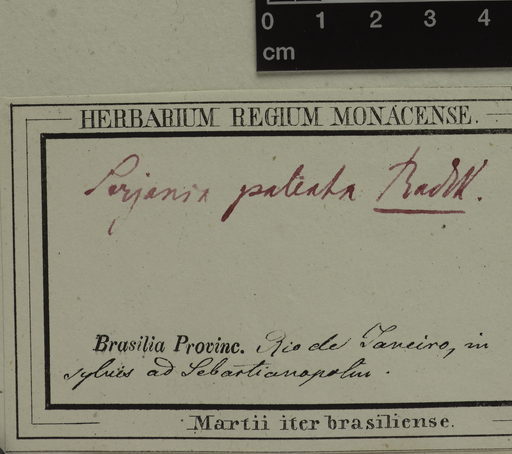 0 1 2 3 4
cm
HERBARIUM REGIUM MONACENSE.
Serjania paleata Radlk.
Brasilia Provinc. Rio de Janeiro, in
sylvis ad Sebastianopolin.
Martii iter brasiliense.